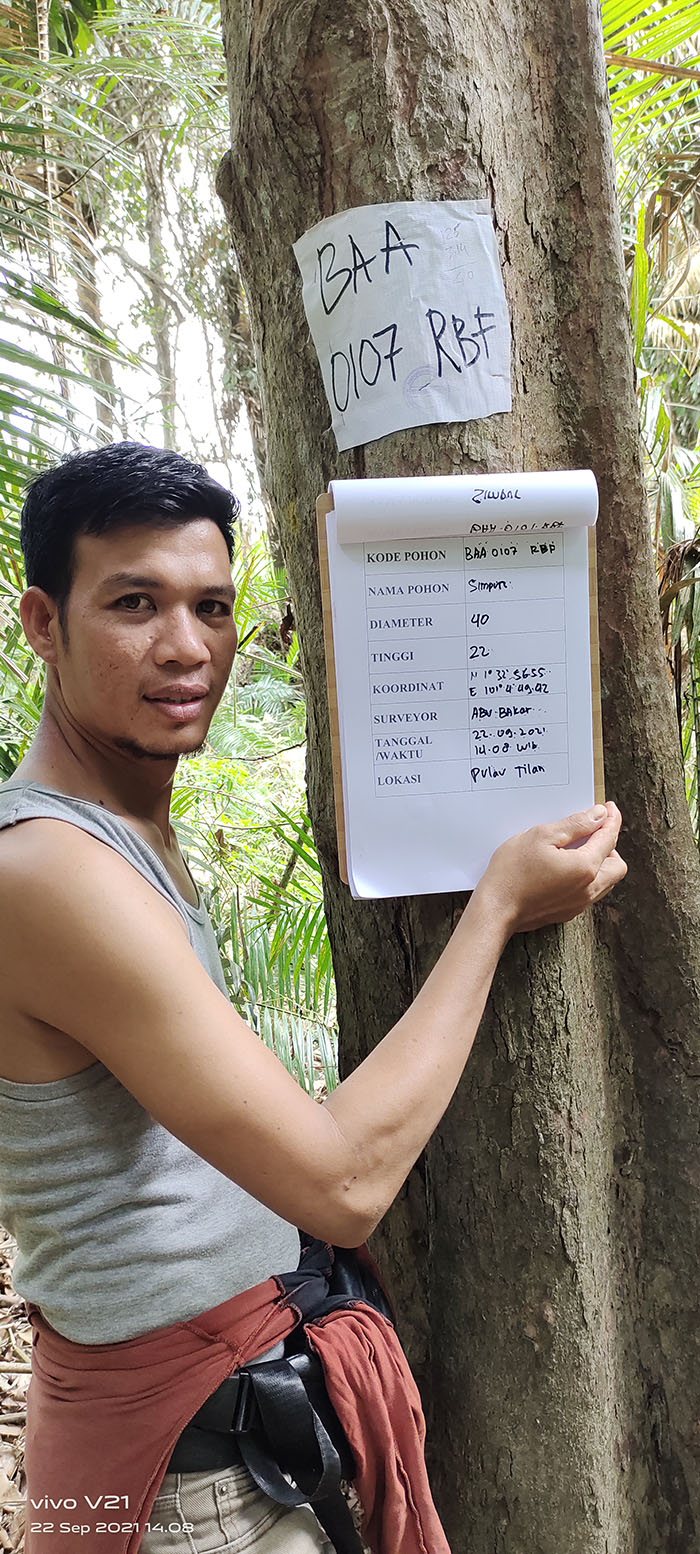 BAA
0107 RBF
ZILUBAL
KODE POHON BAA 0107 RBF
NAMA POHON Simpur
DIAMETER 40
TINGGI 22
KOORDINAT N 1° 32' 56.55
E 101° 4' 49.42
SURVEYOR ABU BAKAr
TANGGAL 22.09.2021
/WAKTU 14.08 WIB
LOKASI PULAU TILAN
vivo V21
22 Sep 2021 14.08